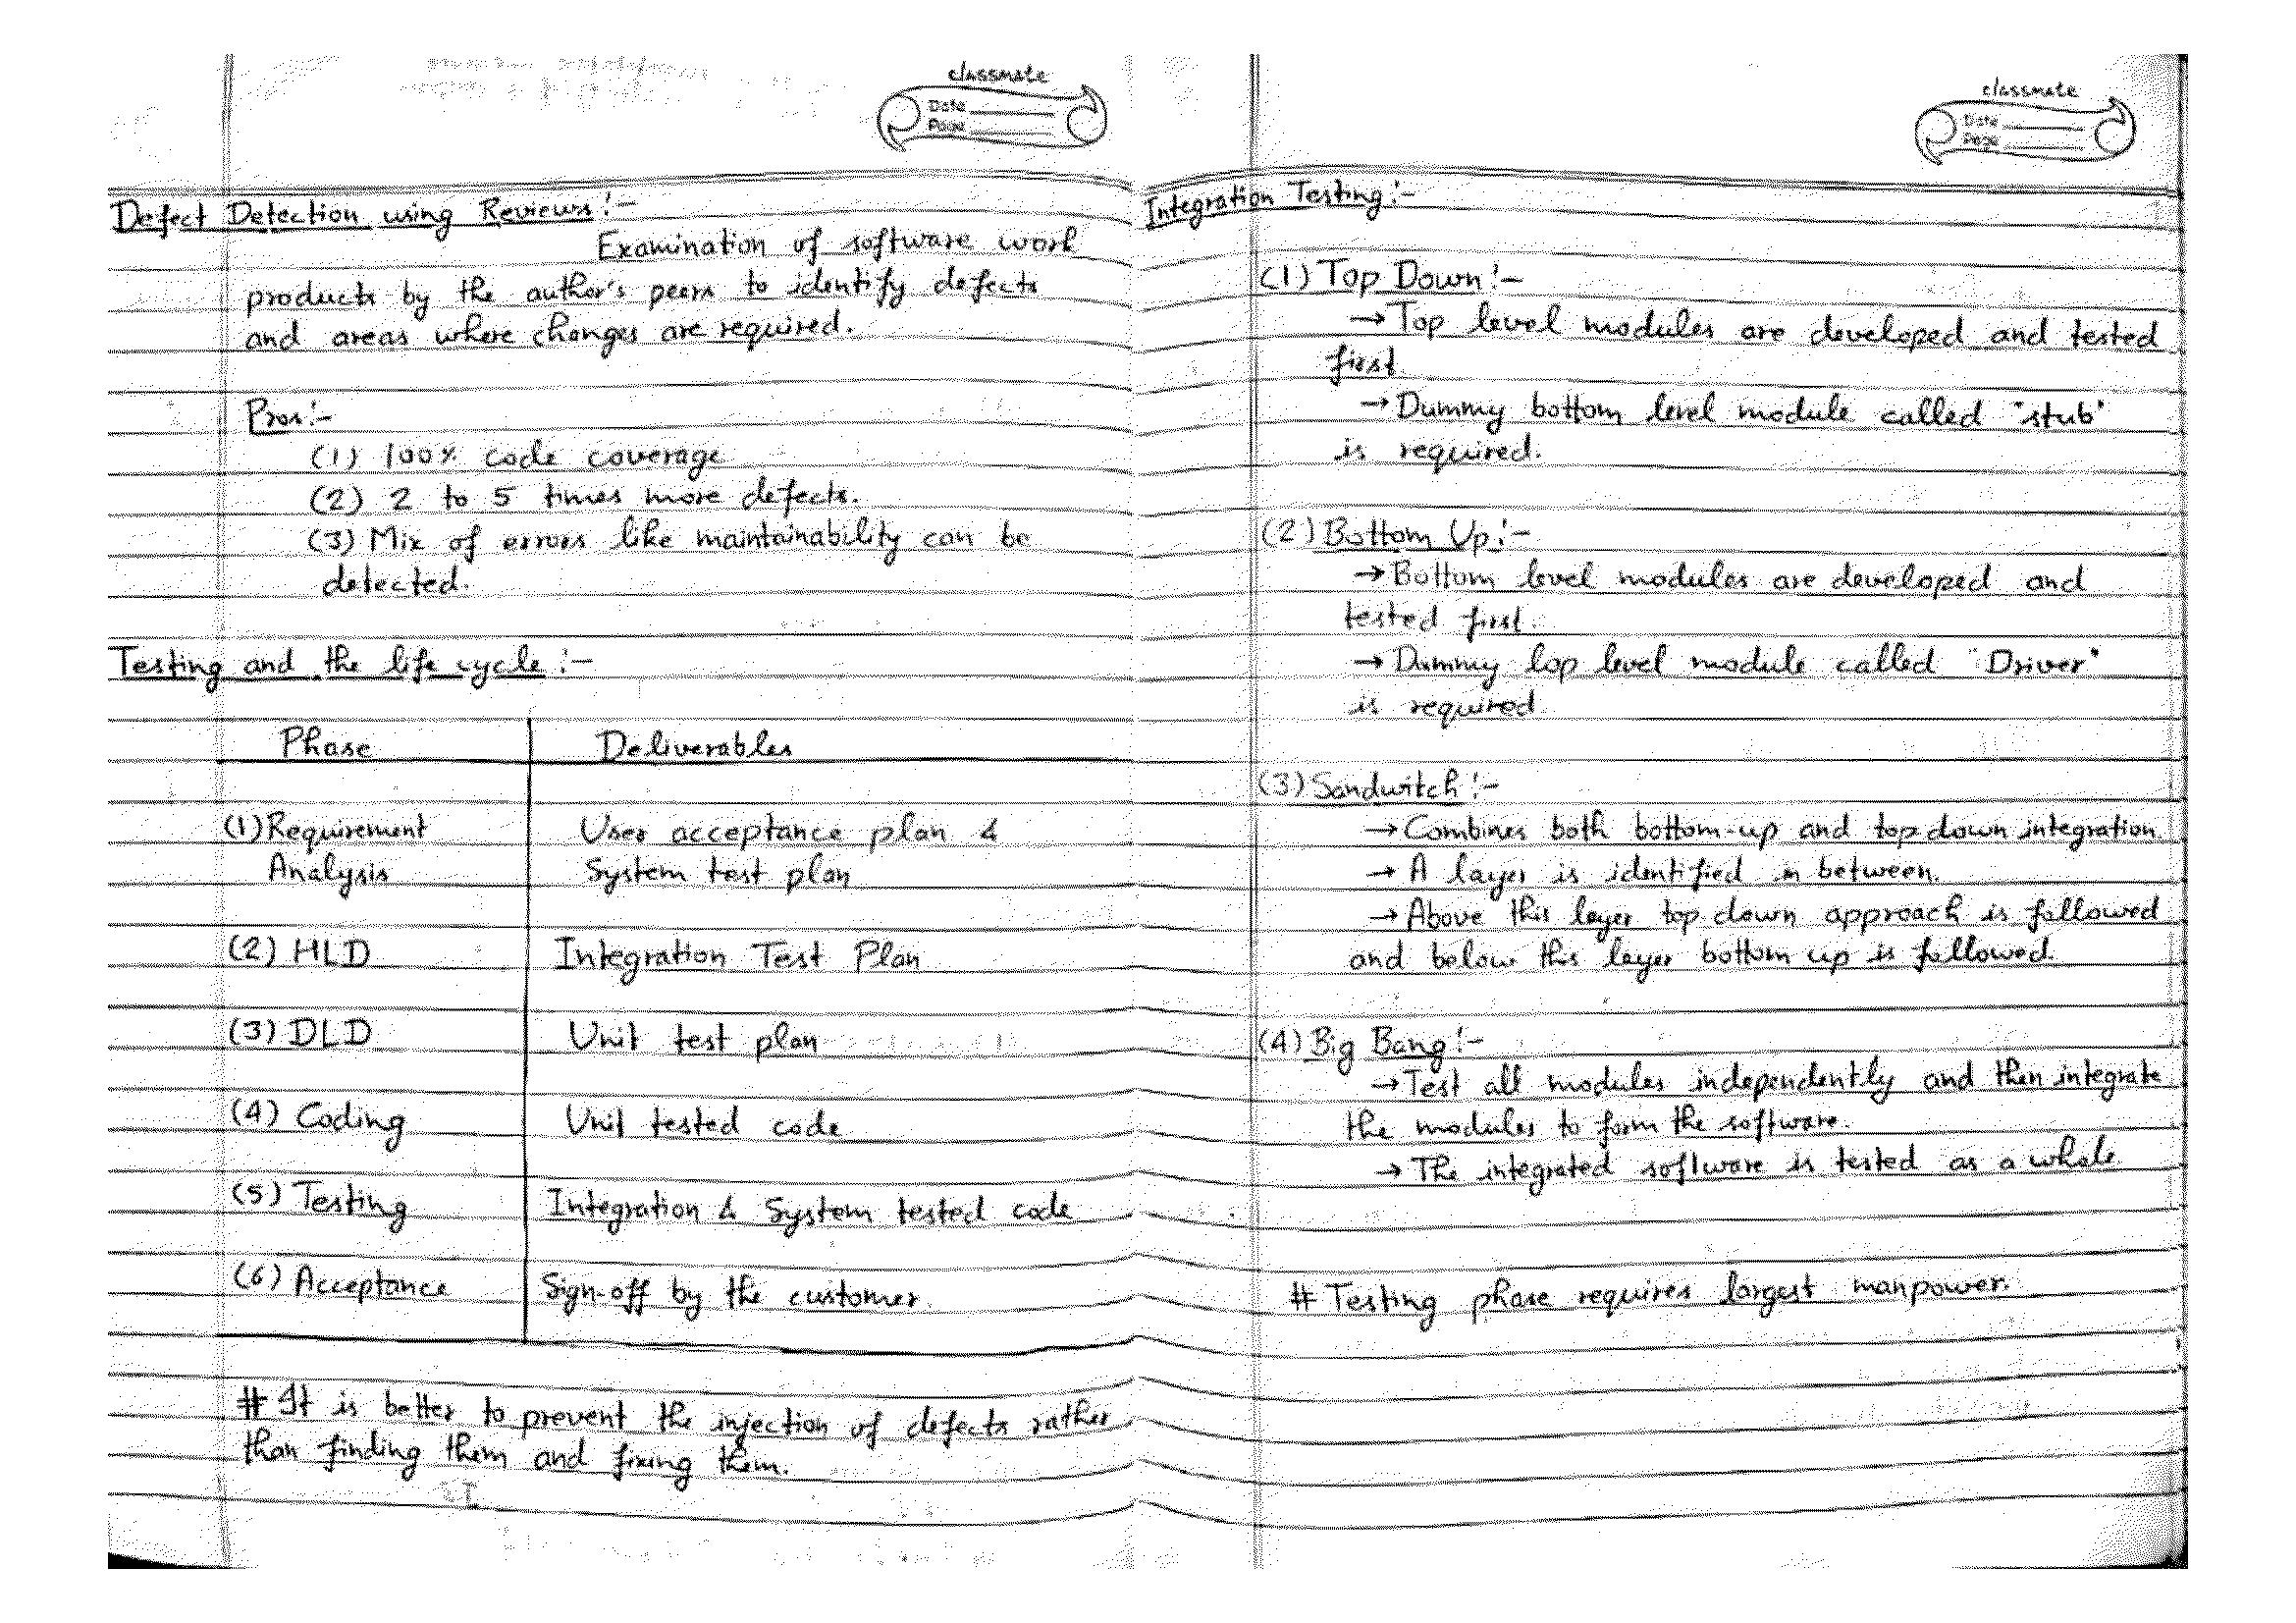 classmate
Date
Page
Defect Detection using Reviews:-
Examination of software work
products by the author's peers to identify defects
and areas where changes are required.
Pros:-
(1) 100% code coverage
(2) 2 to 5 times more defects.
(3) Mix of errors like maintainability can be
detected.
Testing and the life cycle:-
Phase Deliverables
(1) Requirement User acceptance plan &
Analysis System test plan
(2) HLD Integration Test Plan
(3) DLD Unit test plan
(4) Coding Unit tested code
(5) Testing Integration & System tested code
(6) Acceptance Sign-off by the customer.
# It is better to prevent the injection of defects rather
than finding them and fixing them.
classmate
Date
Page
Integration Testing:-
(1) Top Down:-
→ Top level modules are developed and tested
first.
→ Dummy bottom level module called "stub"
is required.
(2) Bottom Up:-
→ Bottom level modules are developed and
tested first.
→ Dummy top level module called "Driver"
is required
(3) Sandwitch:-
→ Combines both bottom-up and top down integration.
→ A layer is identified in between.
→ Above this layer top down approach is followed
and below this layer bottom up is followed.
(4) Big Bang:-
→ Test all modules independently and then integrate
the modules to form the software.
→ The integrated software is tested as a whole
# Testing phase requires largest manpower.